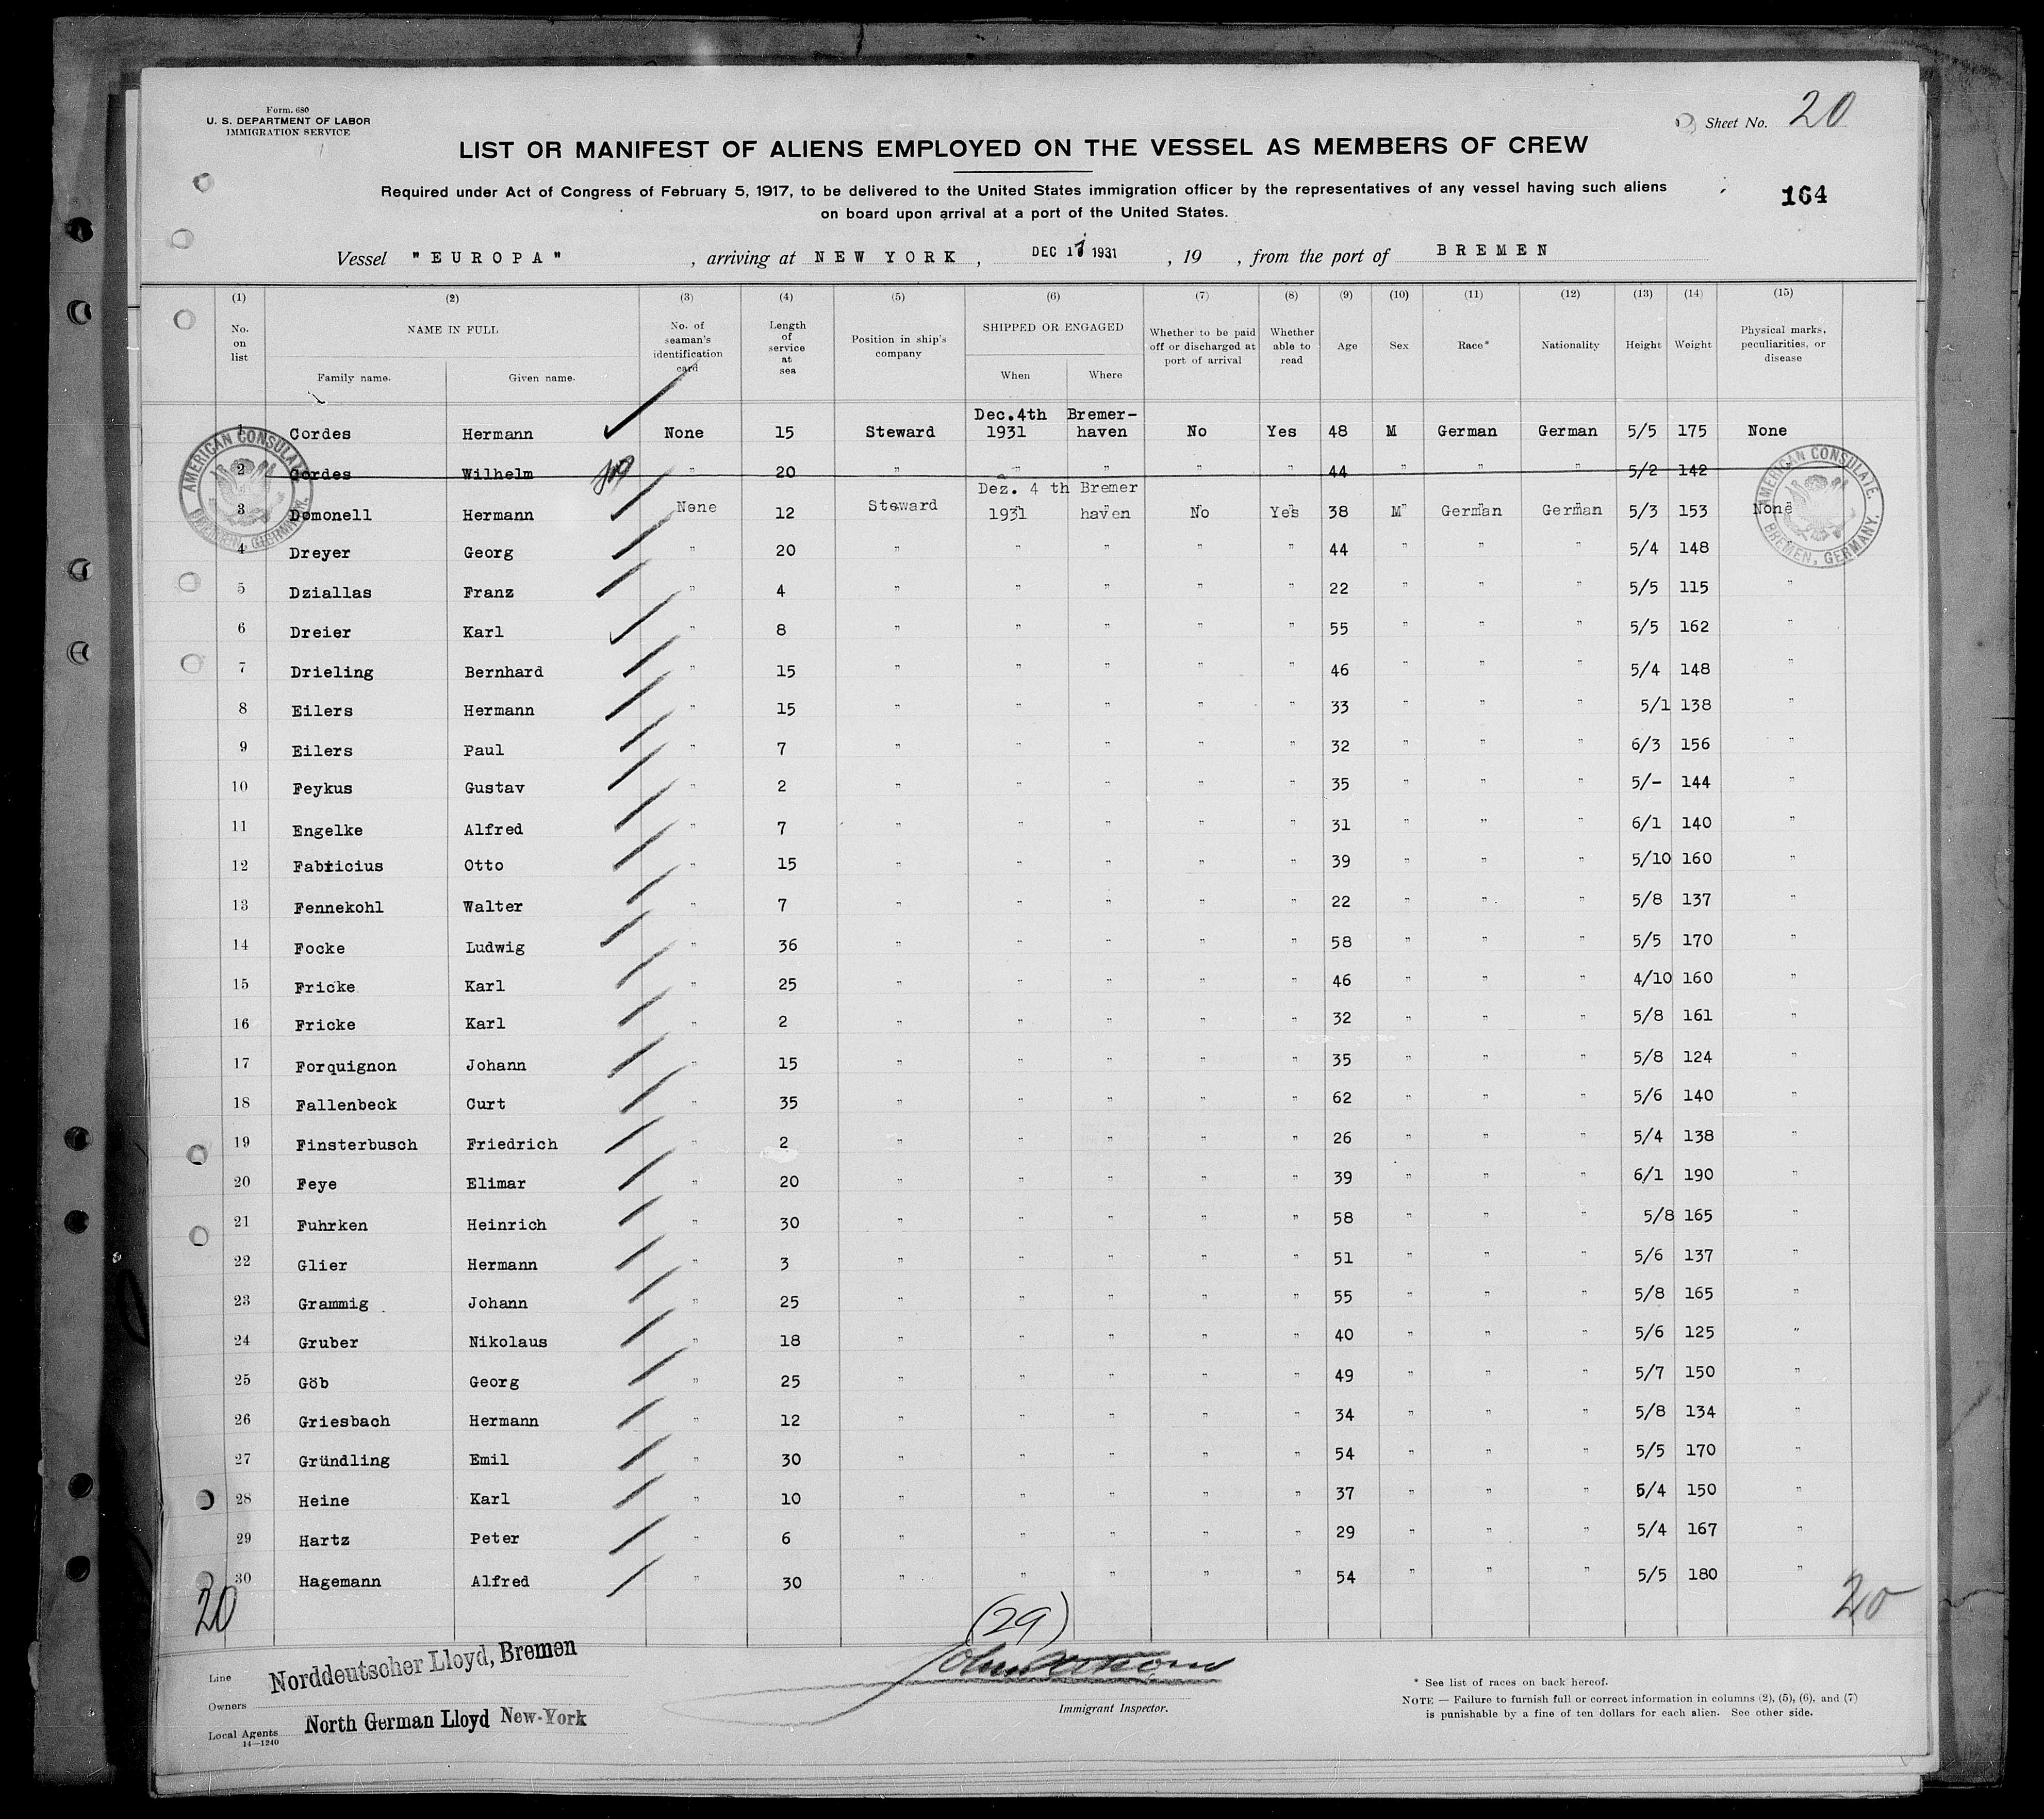 Form. 680
U. S. DEPARTMENT OF LABOR
IMMIGRATION SERVICE
Sheet No. 20
LIST OR MANIFEST OF ALIENS EMPLOYED ON THE VESSEL AS MEMBERS OF CREW
Required under Act of Congress of February 5, 1917, to be delivered to the United States immigration officer by the representatives of any vessel having such aliens
on board upon arrival at a port of the United States.
164
Vessel "EUROPA" , arriving at NEW YORK , DEC 1 1931 , 19 , from the port of BREMEN
(1) (2) (3) (4) (5) (6) (7) (8) (9) (10) (11) (12) (13) (14) (15)
No. on list NAME IN FULL Family name. Given name. No. of seaman's identification card Length of service at sea Position in ship's company SHIPPED OR ENGAGED When Where Whether to be paid off or discharged at port of arrival Whether able to read Age Sex Race* Nationality Height Weight Physical marks, peculiarities, or disease
1 Cordes Hermann None 15 Steward Dec.4th 1931 Bremer-haven No Yes 48 M German German 5/5 175 None
2 Cordes Wilhelm " 20 " " " " " 44 " " " 5/2 142
3 Domonell Hermann None 12 Steward Dez. 4 th 1931 Bremer haven No Yes 38 M German German 5/3 153 None
4 Dreyer Georg " 20 " " " " " 44 " " " 5/4 148
5 Dziallas Franz " 4 " " " " " 22 " " " 5/5 115 "
6 Dreier Karl " 8 " " " " " 55 " " " 5/5 162 "
7 Drieling Bernhard " 15 " " " " " 46 " " " 5/4 148 "
8 Eilers Hermann " 15 " " " " " 33 " " " 5/1 138 "
9 Eilers Paul " 7 " " " " " 32 " " " 6/3 156 "
10 Feykus Gustav " 2 " " " " " 35 " " " 5/- 144 "
11 Engelke Alfred " 7 " " " " " 31 " " " 6/1 140 "
12 Fabricius Otto " 15 " " " " " 39 " " " 5/10 160 "
13 Fennekohl Walter " 7 " " " " " 22 " " " 5/8 137 "
14 Focke Ludwig " 36 " " " " " 58 " " " 5/5 170 "
15 Fricke Karl " 25 " " " " " 46 " " " 4/10 160 "
16 Fricke Karl " 2 " " " " " 32 " " " 5/8 161 "
17 Forquignon Johann " 15 " " " " " 35 " " " 5/8 124 "
18 Fallenbeck Curt " 35 " " " " " 62 " " " 5/6 140 "
19 Finsterbusch Friedrich " 2 " " " " " 26 " " " 5/4 138 "
20 Feye Elimar " 20 " " " " " 39 " " " 6/1 190 "
21 Fuhrken Heinrich " 30 " " " " " 58 " " " 5/8 165 "
22 Glier Hermann " 3 " " " " " 51 " " " 5/6 137 "
23 Grammig Johann " 25 " " " " " 55 " " " 5/8 165 "
24 Gruber Nikolaus " 18 " " " " " 40 " " " 5/6 125 "
25 Göb Georg " 25 " " " " " 49 " " " 5/7 150 "
26 Griesbach Hermann " 12 " " " " " 34 " " " 5/8 134 "
27 Gründling Emil " 30 " " " " " 54 " " " 5/5 170 "
28 Heine Karl " 10 " " " " " 37 " " " 5/4 150 "
29 Hartz Peter " 6 " " " " " 29 " " " 5/4 167 "
30 Hagemann Alfred " 30 " " " " " 54 " " " 5/5 180 "
AMERICAN CONSULATE. BREMEN, GERMANY.
AMERICAN CONSULATE. BREMEN, GERMANY.
20
20
(29)
Line Norddeutscher Lloyd, Bremen
Owners
Local Agents North German Lloyd New-York
14-1240
Immigrant Inspector.
* See list of races on back hereof.
NOTE — Failure to furnish full or correct information in columns (2), (5), (6), and (7)
is punishable by a fine of ten dollars for each alien. See other side.